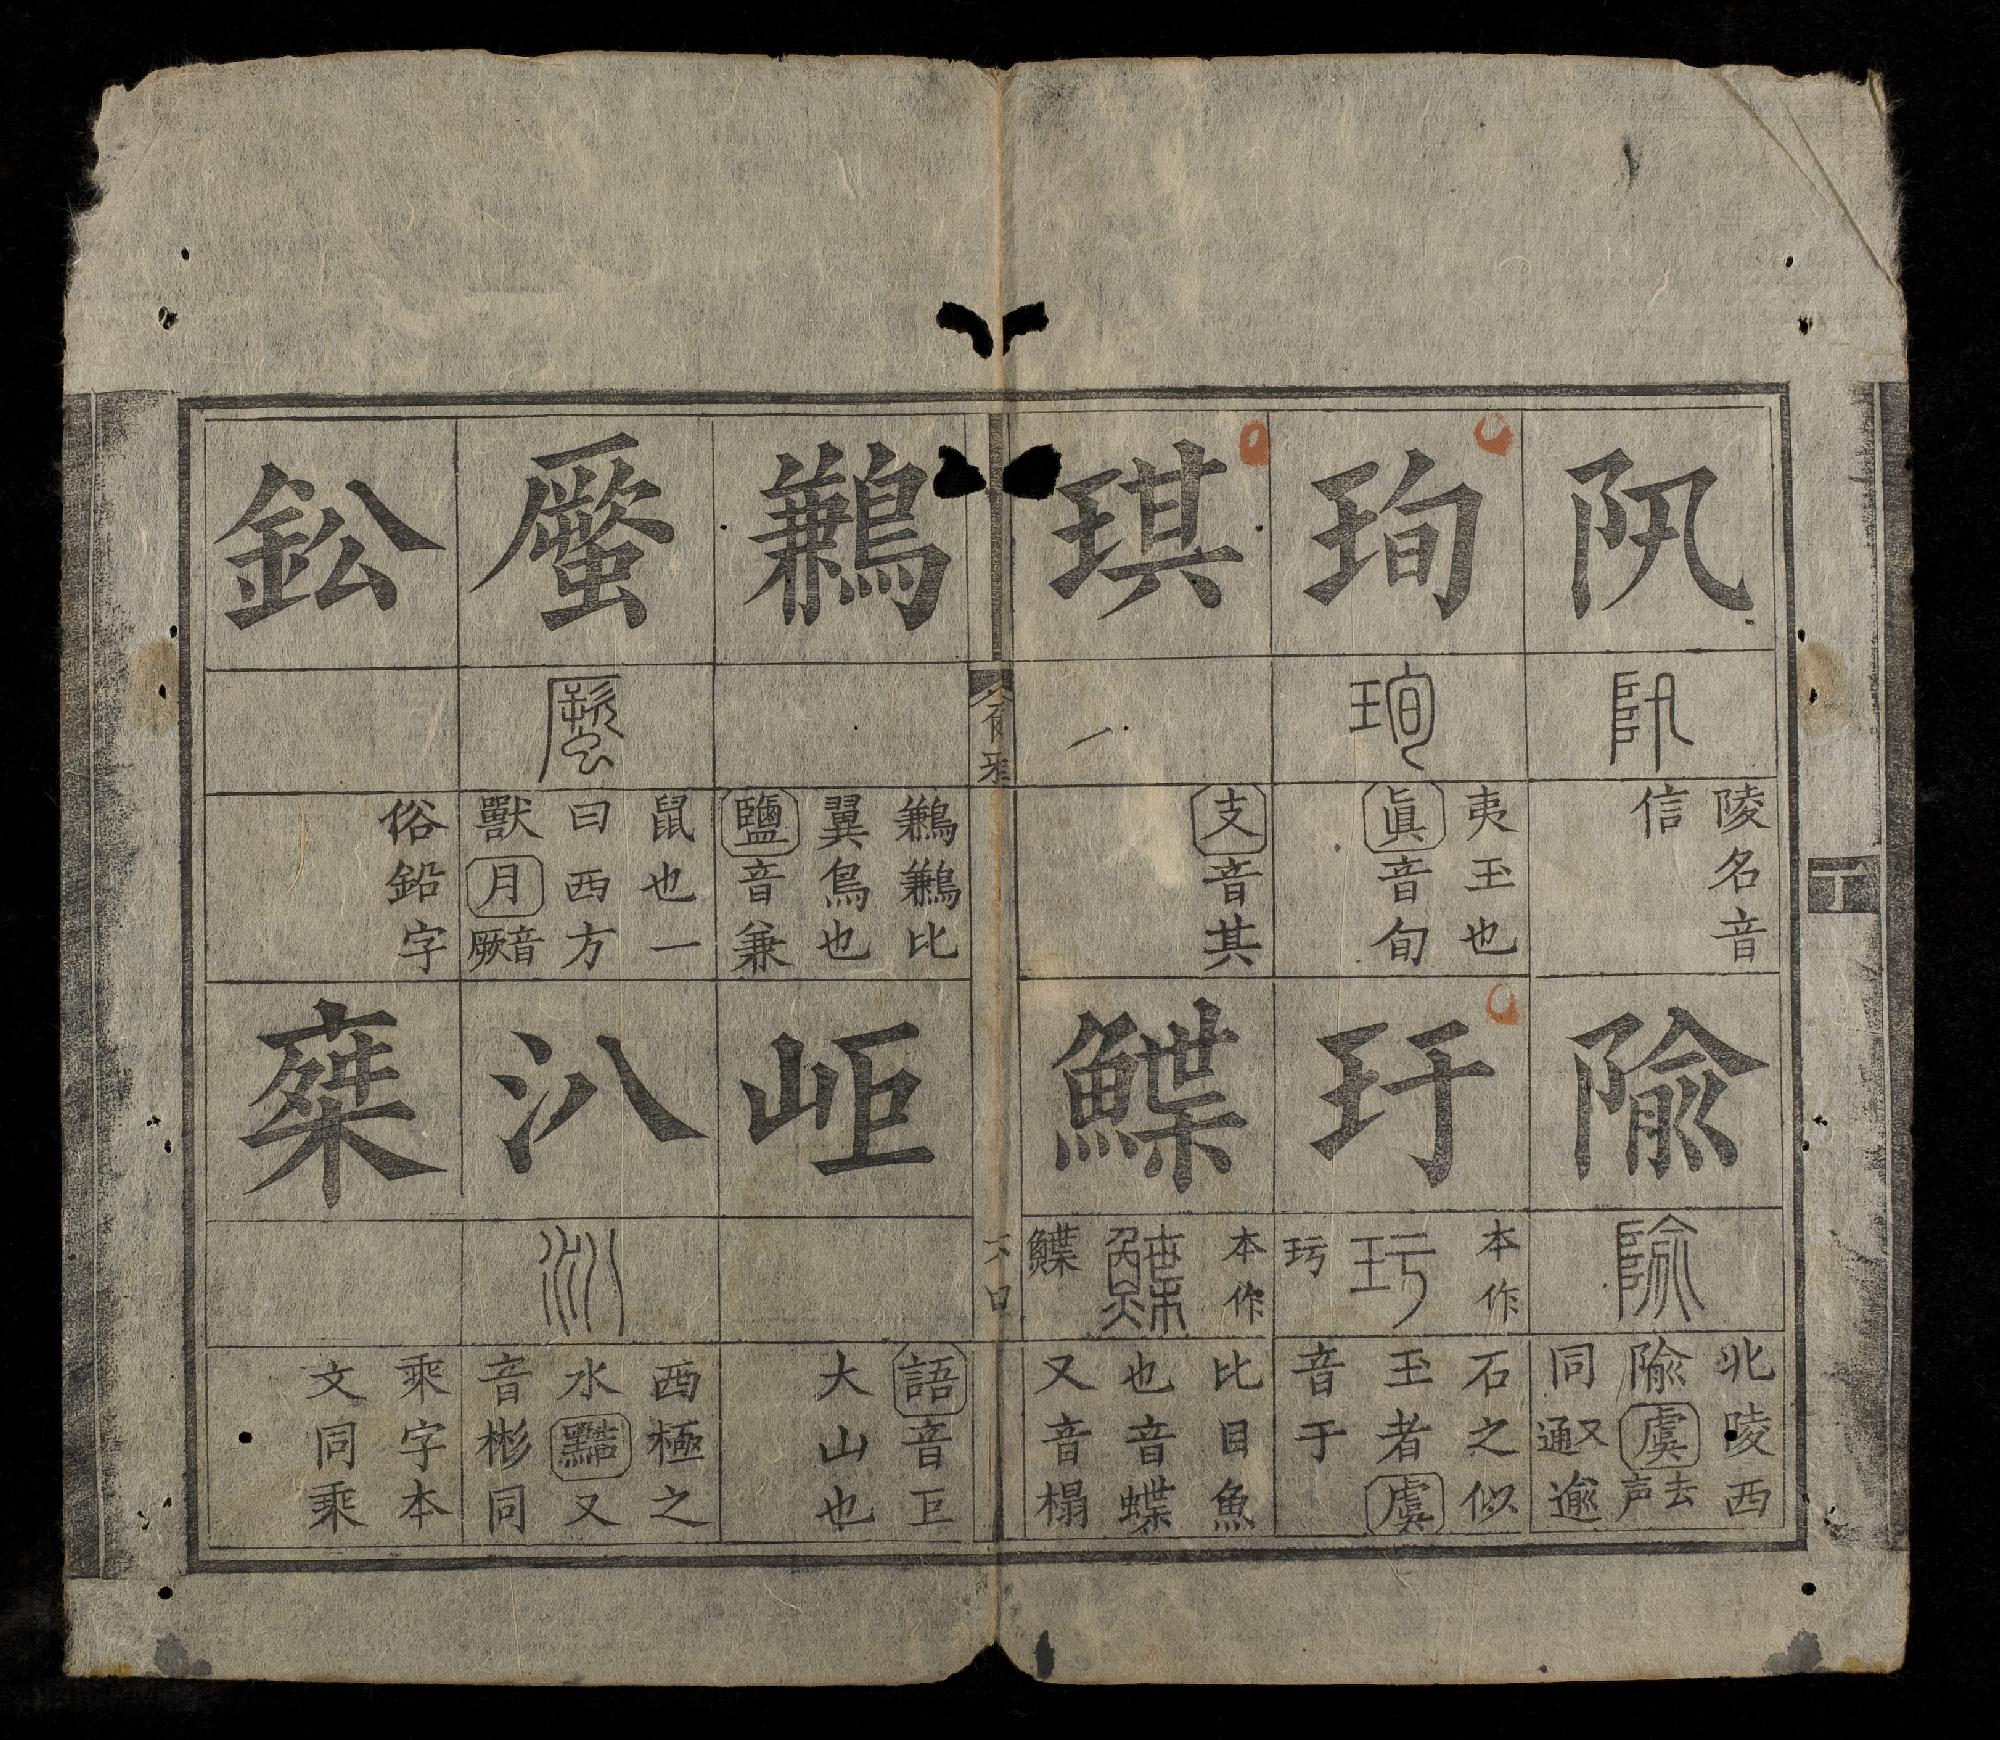 阠
陵名音
信
隃
北陵西
隃虞去声
同又通逾
珣
夷玉也
眞音旬
玗
本作
玗
石之似
玉者虞
音于
琪
支音其
鰈
本作
鰈
比目魚
也音蝶
又音榻
鶼
鶼鶼比
翼鳥也
鹽音兼
岠
語音巨
大山也
鼠也一
曰西方
獸月音厥
汃
西極之
水黠又
音彬同
鈆
俗鉛字
乘字本
文同乘
丁